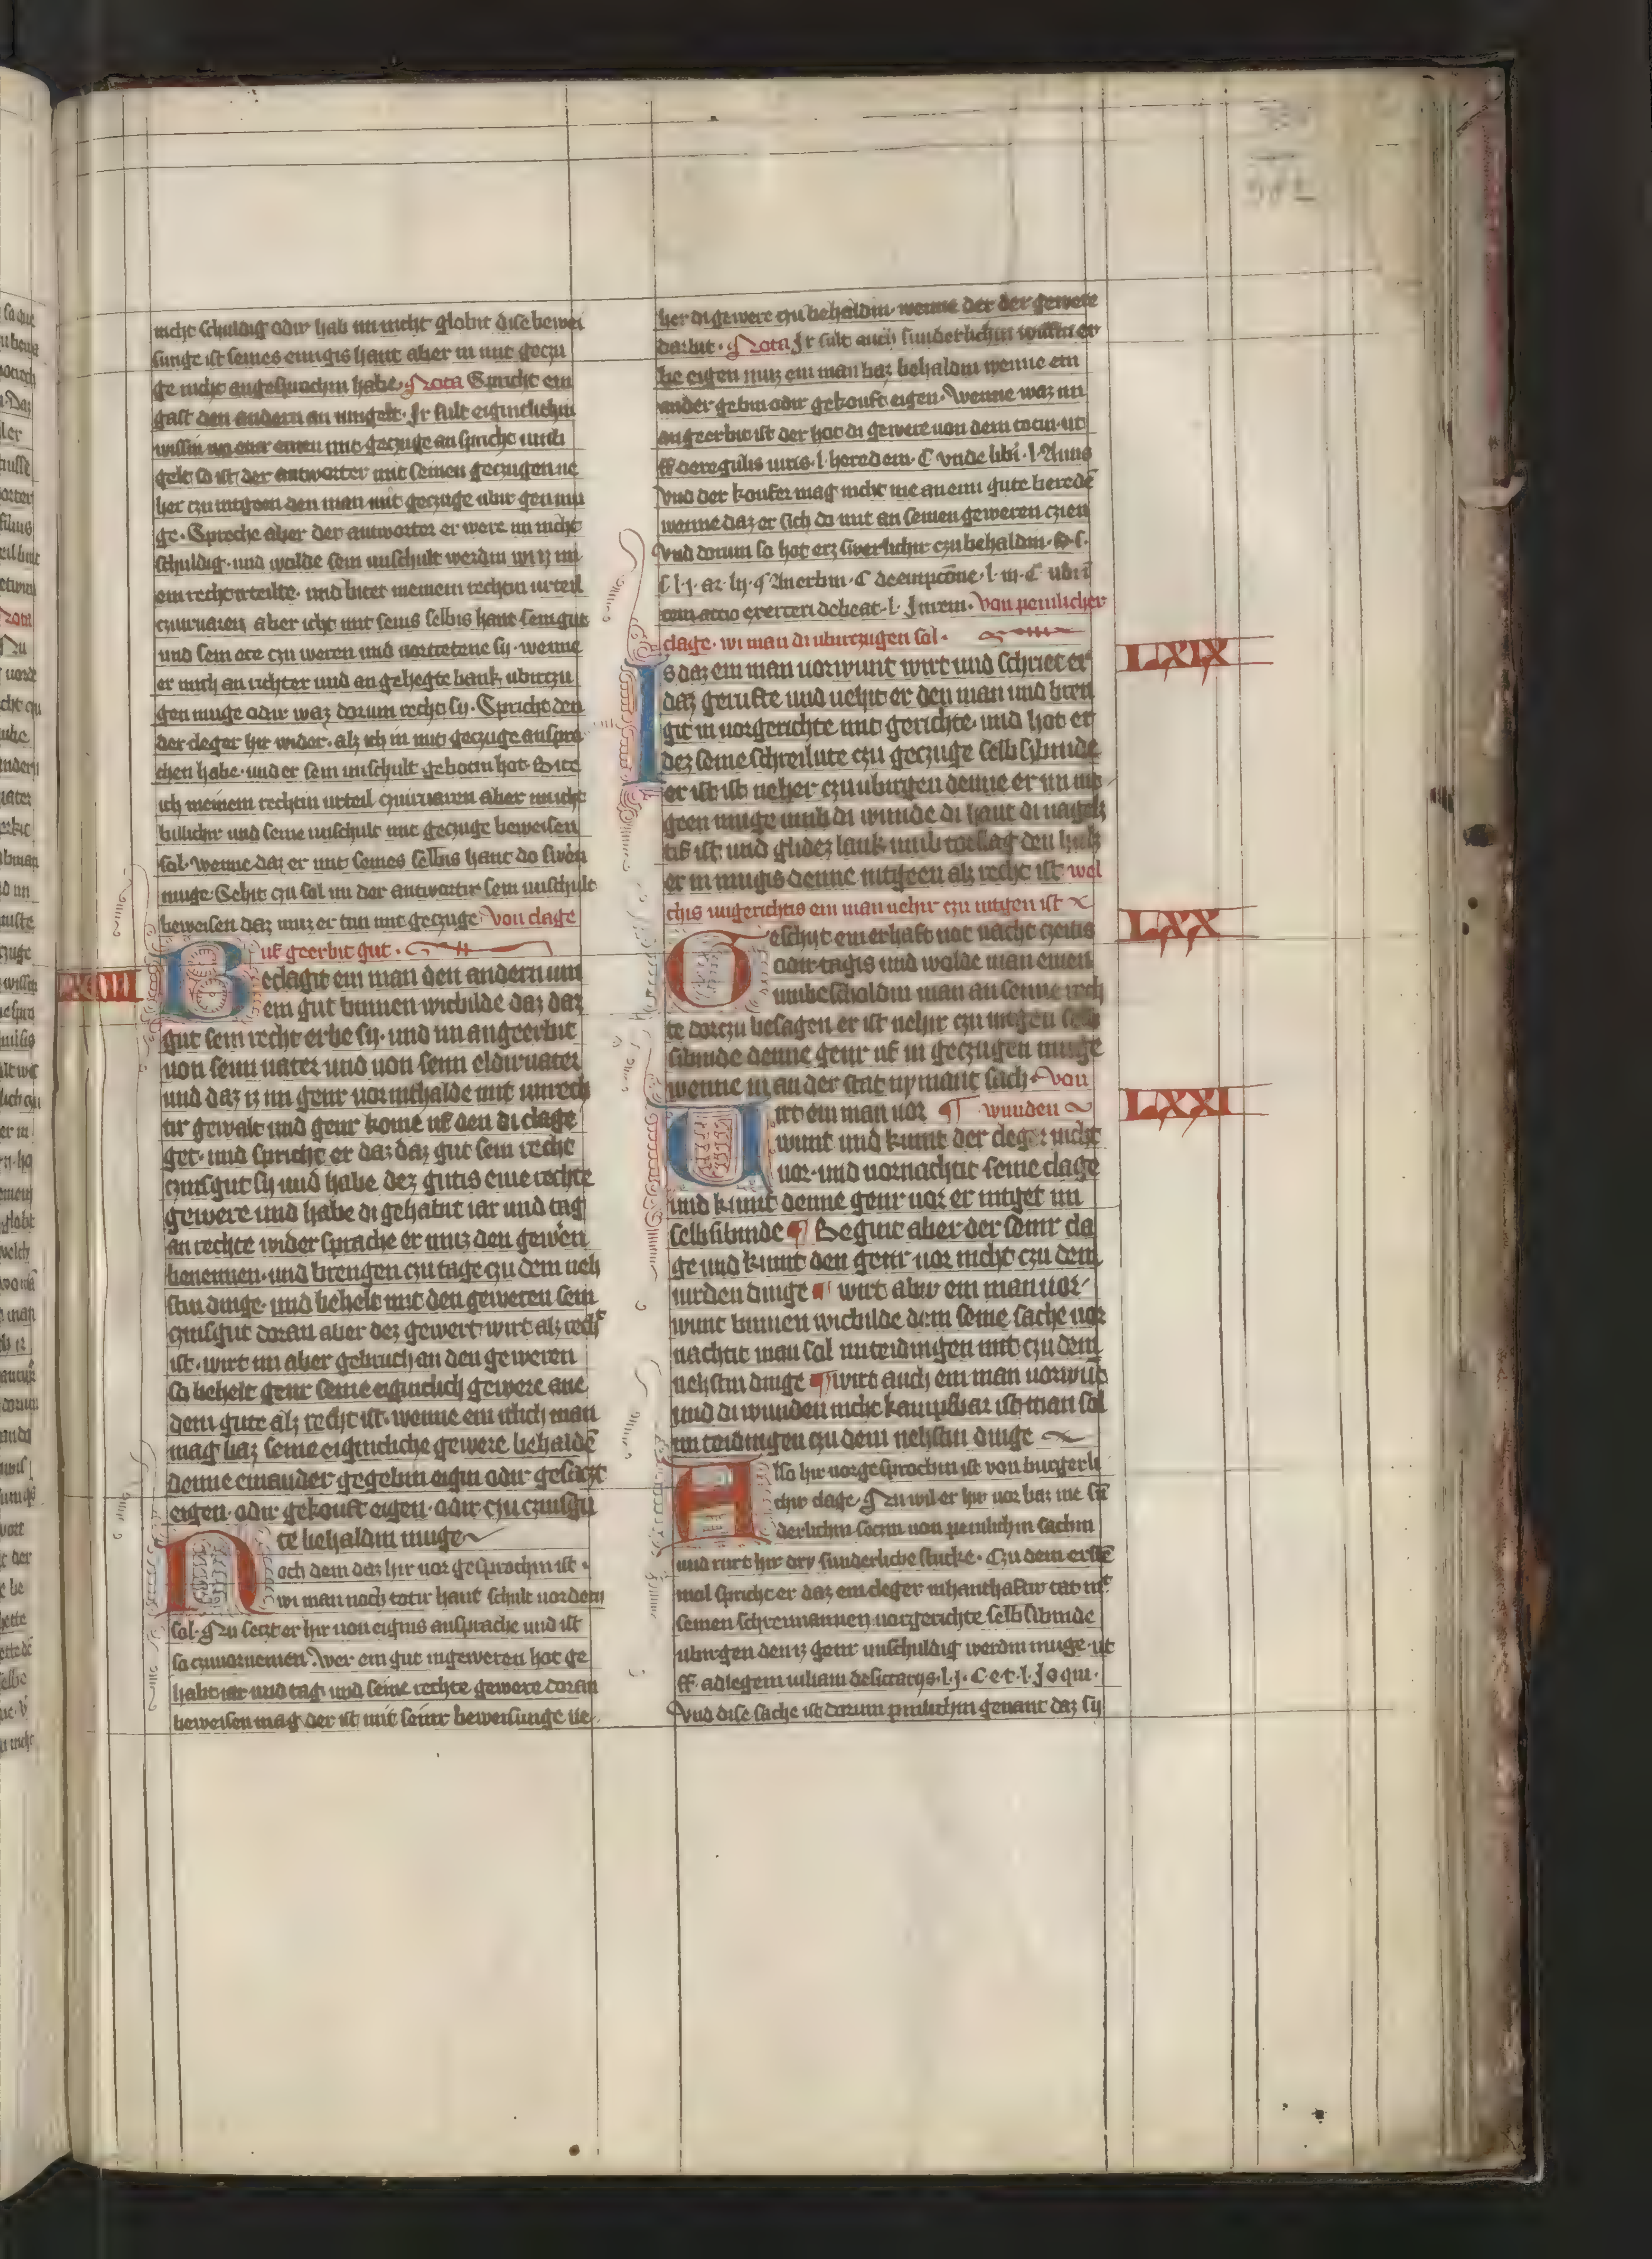 nicht schuldig odir hab im nicht globit dise bewei
sunge ist seines einigis hant aber in mit geczu
ge nicht angesprochin habe. Nota Spricht ein
gast den andern an umgelt. Ir sult eigintlichin
wissin wo einer einen mit geczuge an spricht umb
gelt so ist der antworter mit seinen geczugen ne
her czu intgeen den man mit geczuge ubir gen mu
ge. Spreche aber der antworter er were im nicht
schuldig. und wolde sein unschult werdin wi iz im
ein recht irteilte. und bitet meinem rechtin urteil
czuirvaren aber icht mit seins selbis hant sein gut
und sein ere czu weren und vortretene sy. wenne
er mich an richter und an gehegte bank ubirczu
gen muge odir waz dorum recht sy. Spricht den
der cleger hir wider. alz ich in mit geczuge anspro
chen habe. und er sein unschult gebotin hot. Bite
ich meinem rechtin urteil czuirvaren aber nu icht
billichir und seine unschult mit geczuge beweisen
sol. wenne daz er mit seines selbis hant do sweren
muge. Sehit czu sol nu der antwortir sein unschult
beweisen daz muz er tun mit geczuge. Von clage
uf geerbit gut.
LXVIII
Beclagit ein man den andern um
ein gut binnen wicbilde daz daz
gut sein recht erbe sy. und im angeerbit
von seim vater und von seim eldirvater
und daz iz im genir vorinthalde mit unrech
tir gewalt und genir kome uf den di clage
get. und spricht er daz daz gut sein recht
czinsgut sy und habe dez gutis eine rechte
gewere und habe di gehabit iar und tag
an rechte wider sprache er muz den geweren
benennen. und brengen czu tage czu dem neh
stin dinge. und behelt mit den geweren sein
czinsgut doran aber dez gewert wirt alz recht
ist. wirt im aber gebruch an den geweren
so behelt genir seine eigintlich gewere ane
dem gute alz recht ist. wenne ein itlich man
mag baz seine eigintliche gewere behalden
denne einander gegebin eigin odir gesaczt
eigen. odir gekouft eigen. odir czu czinsgu
te behaldin muge
Noch dem daz hir vor gesprochin ist.
wi man noch totir hant schult vordern
sol. Nu seczt er hir von eigins ansprache und ist
so czuvornemen. Wer ein gut ingeweren hot ge
habt iar und tag und seine rechte gewere doran
beweisen mag der ist mit seinir beweisunge ne
her di gewere czu behaldin. wenne der der gewere
darbit. Nota Ir sult auch sunderlichin wissin er
be eigen muz ein man baz behaldin wenne ein
ander gebin odir gekouft eigen. Wenne waz im
angeerbit ist der hot di gewere von dem totin. ut
ff. de regulis iuris. l. heredem. C. unde libi. l. Anno
Und der koufer mag nicht me an eim gute bereden
wenne daz er sich do mit an seinen geweren czien
Und dorum so hot erz swerlichir czu behaldin.
C de empcone. l. in. C ubi in
rem actio exerceri debeat. l. In rem. Von peinlicher
clage. wi man di ubirczugen sol.
LXIX
Is daz ein man vorwunt wirt und schriet er
daz gerufte und vehit er den man und bren
git in vorgerichte mit gerichte. und hot er
dez seine schreilute czu geczuge selb sibinde
er ist ist neher czu ubirgen denne er im int
geen muge umb di wunde di hant di nagels
tif ist. und glidez lank. umb totslag den hals
er in mugis denne intgeen alz recht ist. wel
chis ungerichtis ein man nehir czu intgen ist
LXX
Geschyt ein erhaft not nacht czeitis
odir tagis und wolde man einen
umbescholdin man an senne rech
te dorczu besagen er ist nehir czu intgen selb
sibinde denne genir uf in geczugen muge
wenne in an der stat nymant sach. Von
wunden
LXXI
Wirt ein man vor
wunt und kumt der cleger nicht
vor. und vornachtit seine clage
und kumt denne genir vor er intget im
selb sibinde ¶ Begint aber der seinir cla
ge und kumt den genir vor nicht czu dem
virden dinge ¶ wirt abir ein man vor
wunt binnen wicbilde dem seine sache vor
nachtit man sol im teidingen mit czu dem
nehstin dinge ¶ wirt auch ein man vorwunt
und di wunden nicht kampfbar ist man sol
im teidingen czu dem nehstin dinge
Also hir vorgesprochin ist von burgerli
chir clage. Nu wil er hir vor baz me sun
derlichin seczin von peinlichin sachin
und rurt hir dry sunderliche stucke. Czu dem ersten
mol spricht er daz ein cleger in hanthaftir tat mit
seinen schreimannen vorgerichte selb sibinde
ubirgen den iz genir unschuldig werdin muge. ut
ff. ad legem iuliam de sicariys. l. j. C e t. l. Is qui.
Und dise sache ist dorum peinlichin genant daz sy